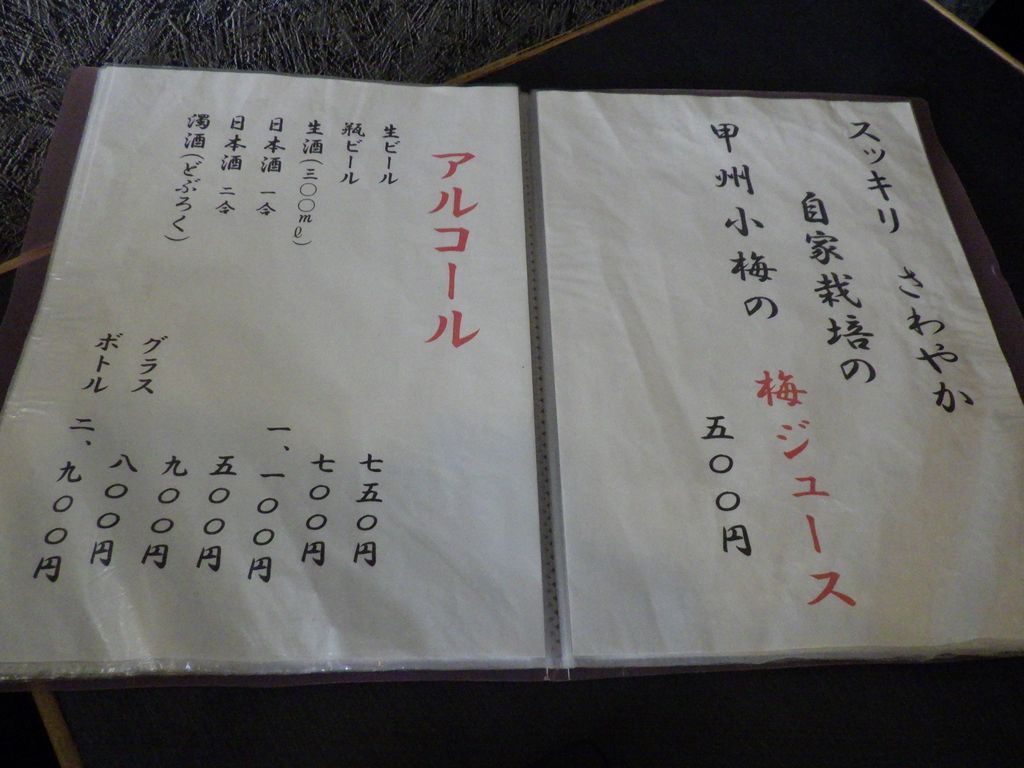 スッキリ さわやか
自家栽培の
甲州小梅の 梅ジュース
五〇〇円
アルコール
生ビール 七五〇円
瓶ビール 七〇〇円
生酒(三〇〇mℓ) 一、一〇〇円
日本酒 一合 五〇〇円
日本酒 二合 九〇〇円
濁酒(どぶろく)
グラス 八〇〇円
ボトル 二、九〇〇円